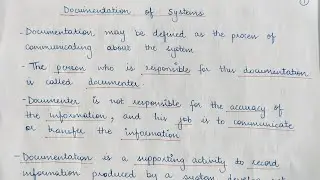 ①
Documentation of Systems
- Documentation may be defined as the process of
communicating about the system
- The person who is responsible for this documentation
is called documenter.
- Documenter is not responsible for the accuracy of
the information, and his job is to communicate
or transfer the information
- Documentation is a supporting activity to record
information produced by a system